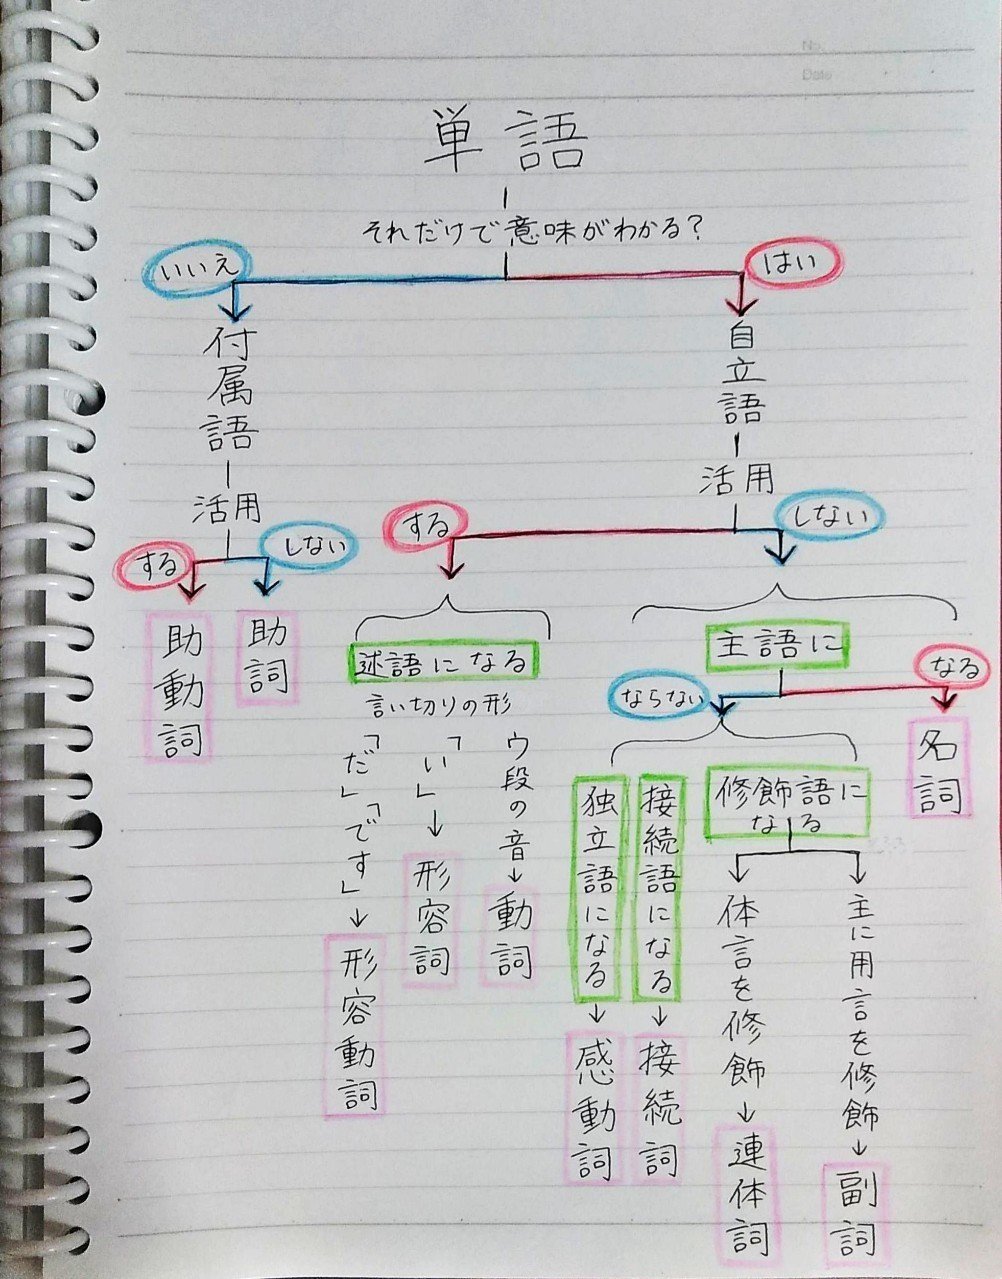 No.
Date
単語
それだけで意味がわかる?
いいえ
はい
付属語
自立語
活用
活用
する
しない
する
しない
助動詞
助詞
述語になる
言い切りの形
ウ段の音→動詞
「い」→形容詞
「だ」「です」→形容動詞
主語に
ならない
なる
名詞
修飾語に
なる
接続語になる→接続詞
独立語になる→感動詞
体言を修飾→連体詞
主に用言を修飾→副詞